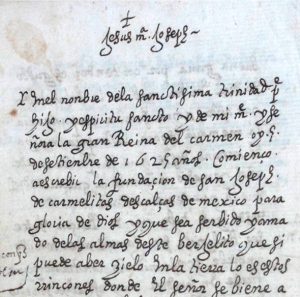 Jesus mᵃ Joseph
Ynel nonbre dela sanctisima trinidad pᵉ
hijo yespiritu sancto y de mi mᵉ yse
ñora la gran Reina del carmen oy
desetienbre de 1625 años. Comienço
aescrebir la fundacion de san Joseph
de carmelitas descalças de mexico para
gloria de dios y que sea serbido yama
do delas almas deste berjelito que si
puede aber zielo enla tierra lo es estos
rincones donde el señor se biene a